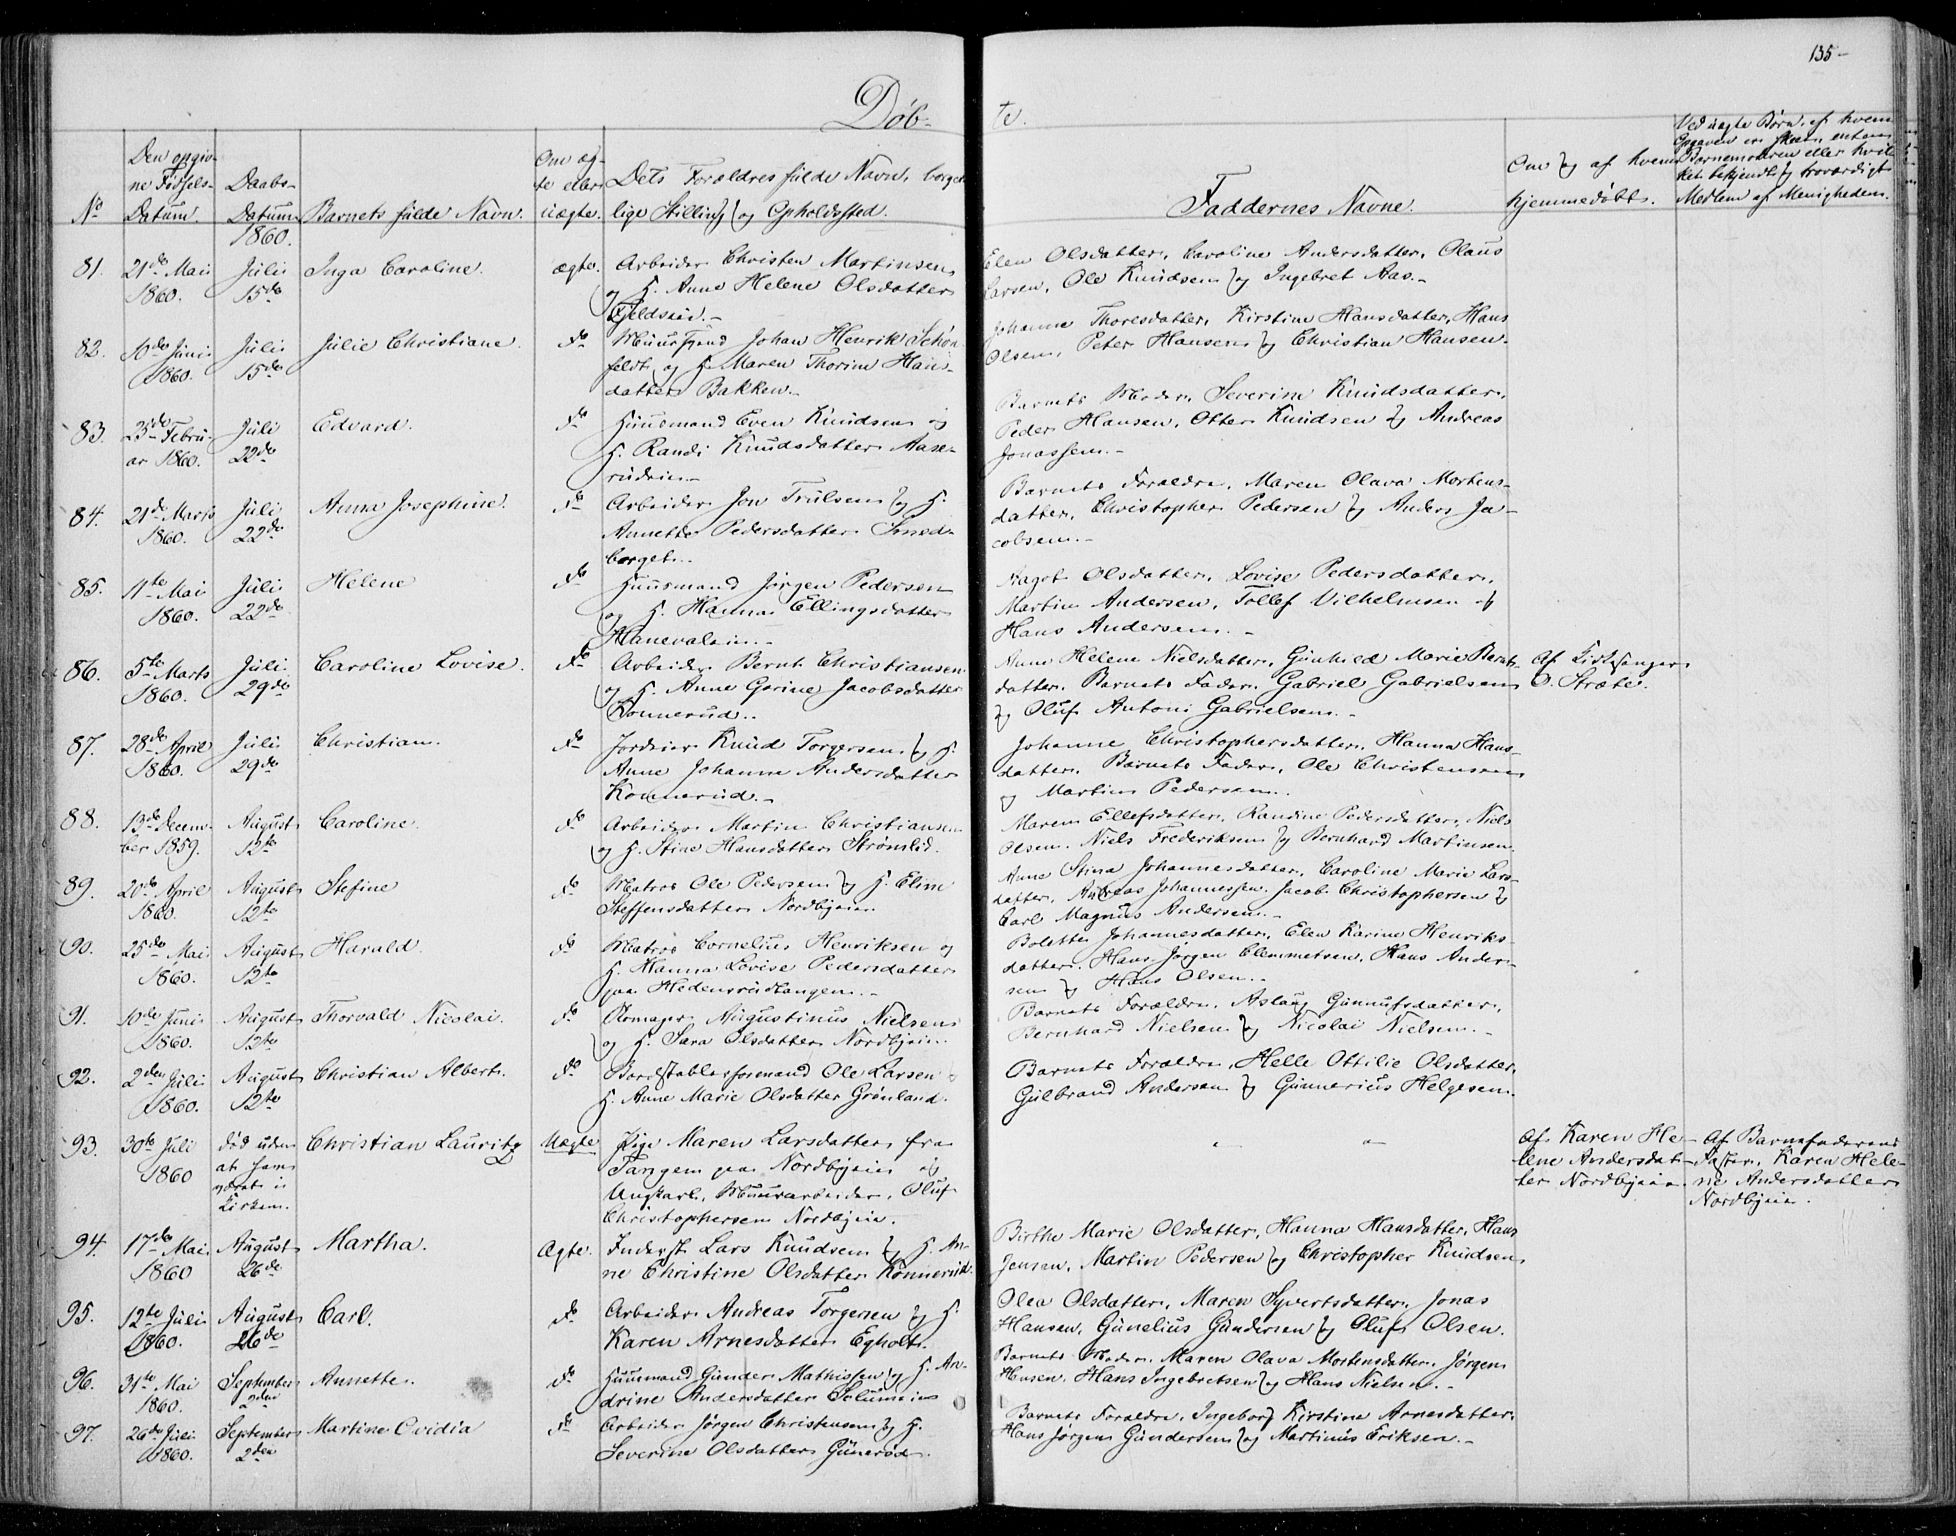 135-
Døb-
te.
No
Den opgiv-
ne Fødsels-
Datum.
Daabs-
Datum
1860.
Barnets fulde Navn.
Om æg-
te eller
uægte.
Dets Forældres fulde Navn, borger-
lige Stilling og Opholdssted.
Faddernes Navne.
Om og af hvem
hjemmedøbt.
Ved uægte Børn, af hvem
Opgaven er skeet, enten
Barnemoderen eller hvil-
ket bekjendt og troværdigt
Medlem af Menigheden.
81.
21de Mai
1860.
Juli
15de
Inga Caroline.
ægte.
Arbeider Christen Martinsen
og H. Anne Helene Olsdatter
Gjeldsøie.-
Elen Olsdatter, Caroline Andersdatter, Olaus
Larsen, Ole Knudsen og Ingebret Aas.-
82.
10de Juni
1860.
Juli
15de
Julie Christiane.
do
Muursvend Johan Henrik Schøn-
feldt og H. Maren Thorine Hans-
datter Bakken.-
Johanne Thoresdatter, Kirstine Hansdatter, Hans
Olsen, Peter Hansen og Christian Hansen.
83.
23de Febru-
ar 1860.
Juli
22de
Edvard.
do
Huusmand Even Knudsen og
H. Randi Knudsdatter Aase-
rudeie.-
Barnets Moder, Severine Knudsdatter,
Peder Hansen, Otter Knudsen og Andreas
Jonassen.-
84.
21de Marts
1860.
Juli
22de
Anna Josephine.
do
Arbeider Jon Trulsen og H.
Annette Pedersdatter Smed-
borget.
Barnets Forældre, Maren Olava Mortens-
datter, Christopher Pedersen og Anders Ja-
cobsen.-
85.
11te Mai
1860.
Juli
22de
Helene
do
Huusmand Jørgen Pedersen
og H. Hanna Ellingsdatter
Hanevaleie.-
Aagot Olsdatter, Lovise Pedersdatter,
Martin Andersen, Tollef Vilhelmsen og
Hans Andersen.-
86.
5te Marts
1860.
Juli
29de
Caroline Lovise.
do
Arbeider Bernt Christiansen
og H. Anne Gorine Jacobsdatter
Konnerud..
Anne Helene Nielsdatter, Gunhild Marie Bernts-
datter, Barnets Fader, Gabriel Gabrielsen
og Oluf Antoni Gabrielsen.-
Af Kirkesanger
O. Stræte.
87.
28de April
1860.
Juli
29de
Christian.
do
Jordeier Knud Torgersen og H.
Anne Johanne Andersdatter
Konnerud.-
Johanne Christophersdatter, Hanna Hans-
datter, Barnets Fader, Ole Christensen
og Martin Pedersen.
88.
13de Decem-
ber 1859.
August
12te
Caroline.
do
Arbeider Martin Christiansen
og H. Stine Hansdatter Strømlid.
Maren Ellefsdatter, Randine Pedersdatter, Niels
Olsen, Niels Frederiksen og Bernhard Martinsen.
89.
20de April
1860.
August
12te
Stefine
do
Matros Ole Pedersen og H. Eline
Steffensdatter Nordbyeie.
Anne Stina Johannesdatter, Caroline Marie Lars-
datter, Andreas Johannessen, Jacob Christophersen og
Carl Magnus Andersen.-
90.
25de Mai
1860.
August
12te
Harald.
do
Matros Cornelius Henriksen og
H. Hanna Lovise Pedersdatter
paa Hedensrudtangen.-
Bolette Johannesdatter, Elen Karine Henriks-
datter, Hans Jørgen Clemmetsen, Hans Ander-
sen og Hans Olsen.-
91.
10de Juni
1860.
August
12te
Thorvald Nicolai.
do
Skomager Augustinus Nielsen
og H. Sara Olsdatter Nordbyeie.
Barnets Forældre, Aslaug Gunnufsdatter,
Bernhard Nielsen og Nicolai Nielsen.-
92.
2den Juli
1860.
August
12te
Christian Albert.
do
Bordstablerformand Ole Larsen
H. Anne Marie Olsdatter Grønland.
Barnets Forældre, Helle Ottilie Olsdatter,
Gulbrand Andersen og Gunnerius Helgesen.
93.
30te Juli
1860
død uden
at have
været i
Kirken.
Christian Lauritz
Uægte
Pige Maren Larsdatter fra
Tangen paa Nordbyeie og
Ungkarl, Muurarbeider, Oluf
Christophersen Nordbyeie.
Af Karen He-
lene Andersdat-
ter Nordbyeie
Af Barnefaderens
Faster, Karen Hele-
ne Andersdatter
Nordbyeie.
94.
17de Mai
1860
August
26de
Martha.
Ægte.
Inderst Lars Knudsen og H. An-
ne Christine Olsdatter Konnerud.
Birthe Marie Olsdatter, Hanna Hansdatter, Hans
Jensen, Martin Pedersen og Christopher Knudsen
95.
12te Juli
1860.
August
26de
Carl.
do
Arbeider Andreas Torgersen og H.
Karen Arnesdatter Egholt.
Olea Olsdatter, Maren Syvertsdatter, Jonas
Hansen, Gunelius Gundersen og Oluf Olsen.
96.
31te Mai
1860.
September
2den
Annette.
do
Huusmand Gunder Mathissen og H. An-
drine Andersdatter Solumeie
Barnets Moder, Maren Olava Mortensdatter, Jørgen
Hansen, Hans Ingebretsen og Hans Nielsen.-
97.
26de Juli
1860.
September
2den
Martine Ovidia
do
Arbeider Jørgen Christensen og H.
Severine Olsdatter Gunerød.
Barnets Forældre, Ingeborg Kirstine Arnesdatter
Hans Jørgen Gundersen og Martinus Eriksen.-